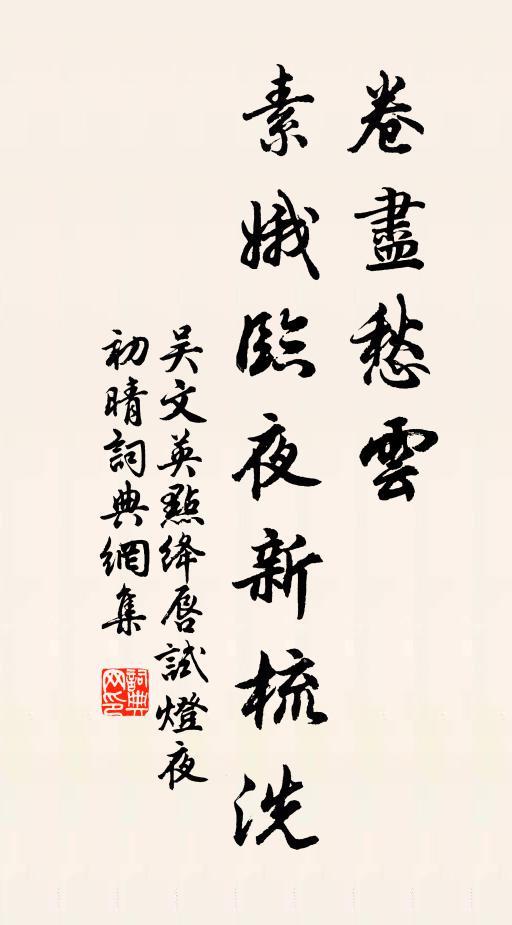 卷盡愁雲
素娥臨夜新梳洗
吴文英點绛唇試燈夜
初晴詞典網集
詞典网印